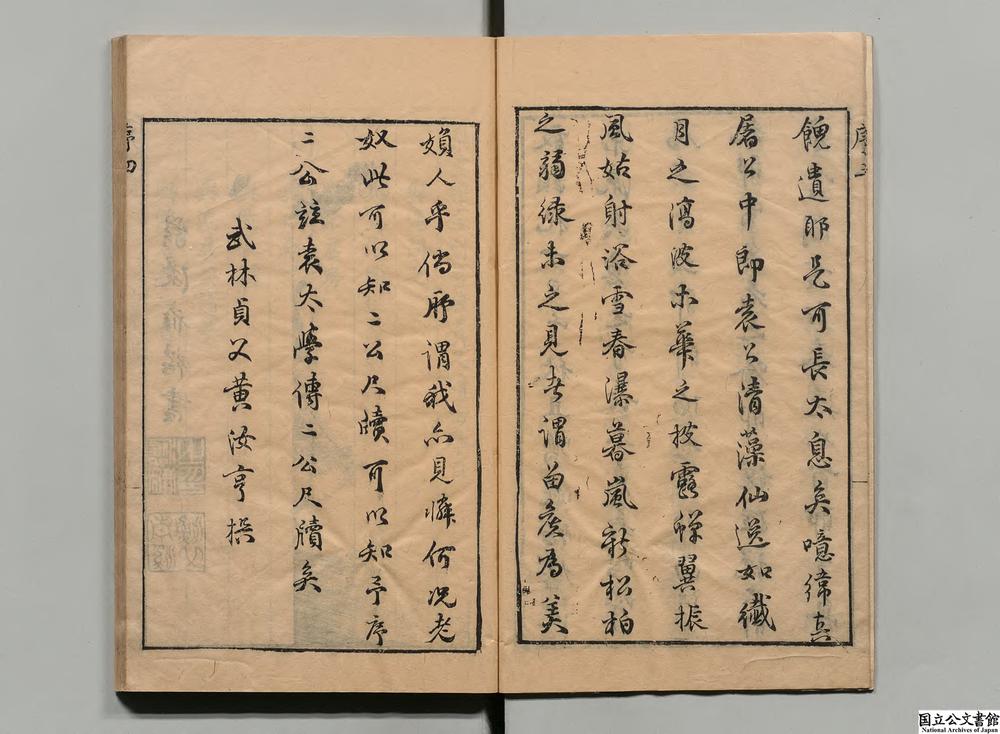 餽遺耶是可長太息矣噫緯真
屠公中郎袁公清藻仙逸如纖
月之瀉波木華之披露蟬翼振
風姑射浴雪春瀑暮嵐新松柏
之翦綠未之見者謂留侯為美
媍人乎倘所謂我亦見憐何况老
奴此可以知二公尺牘可以知予序
二公註袁太學傳二公尺牘矣
武林貞父黃汝亨撰
序五
序四
国立公文書館
National Archives of Japan